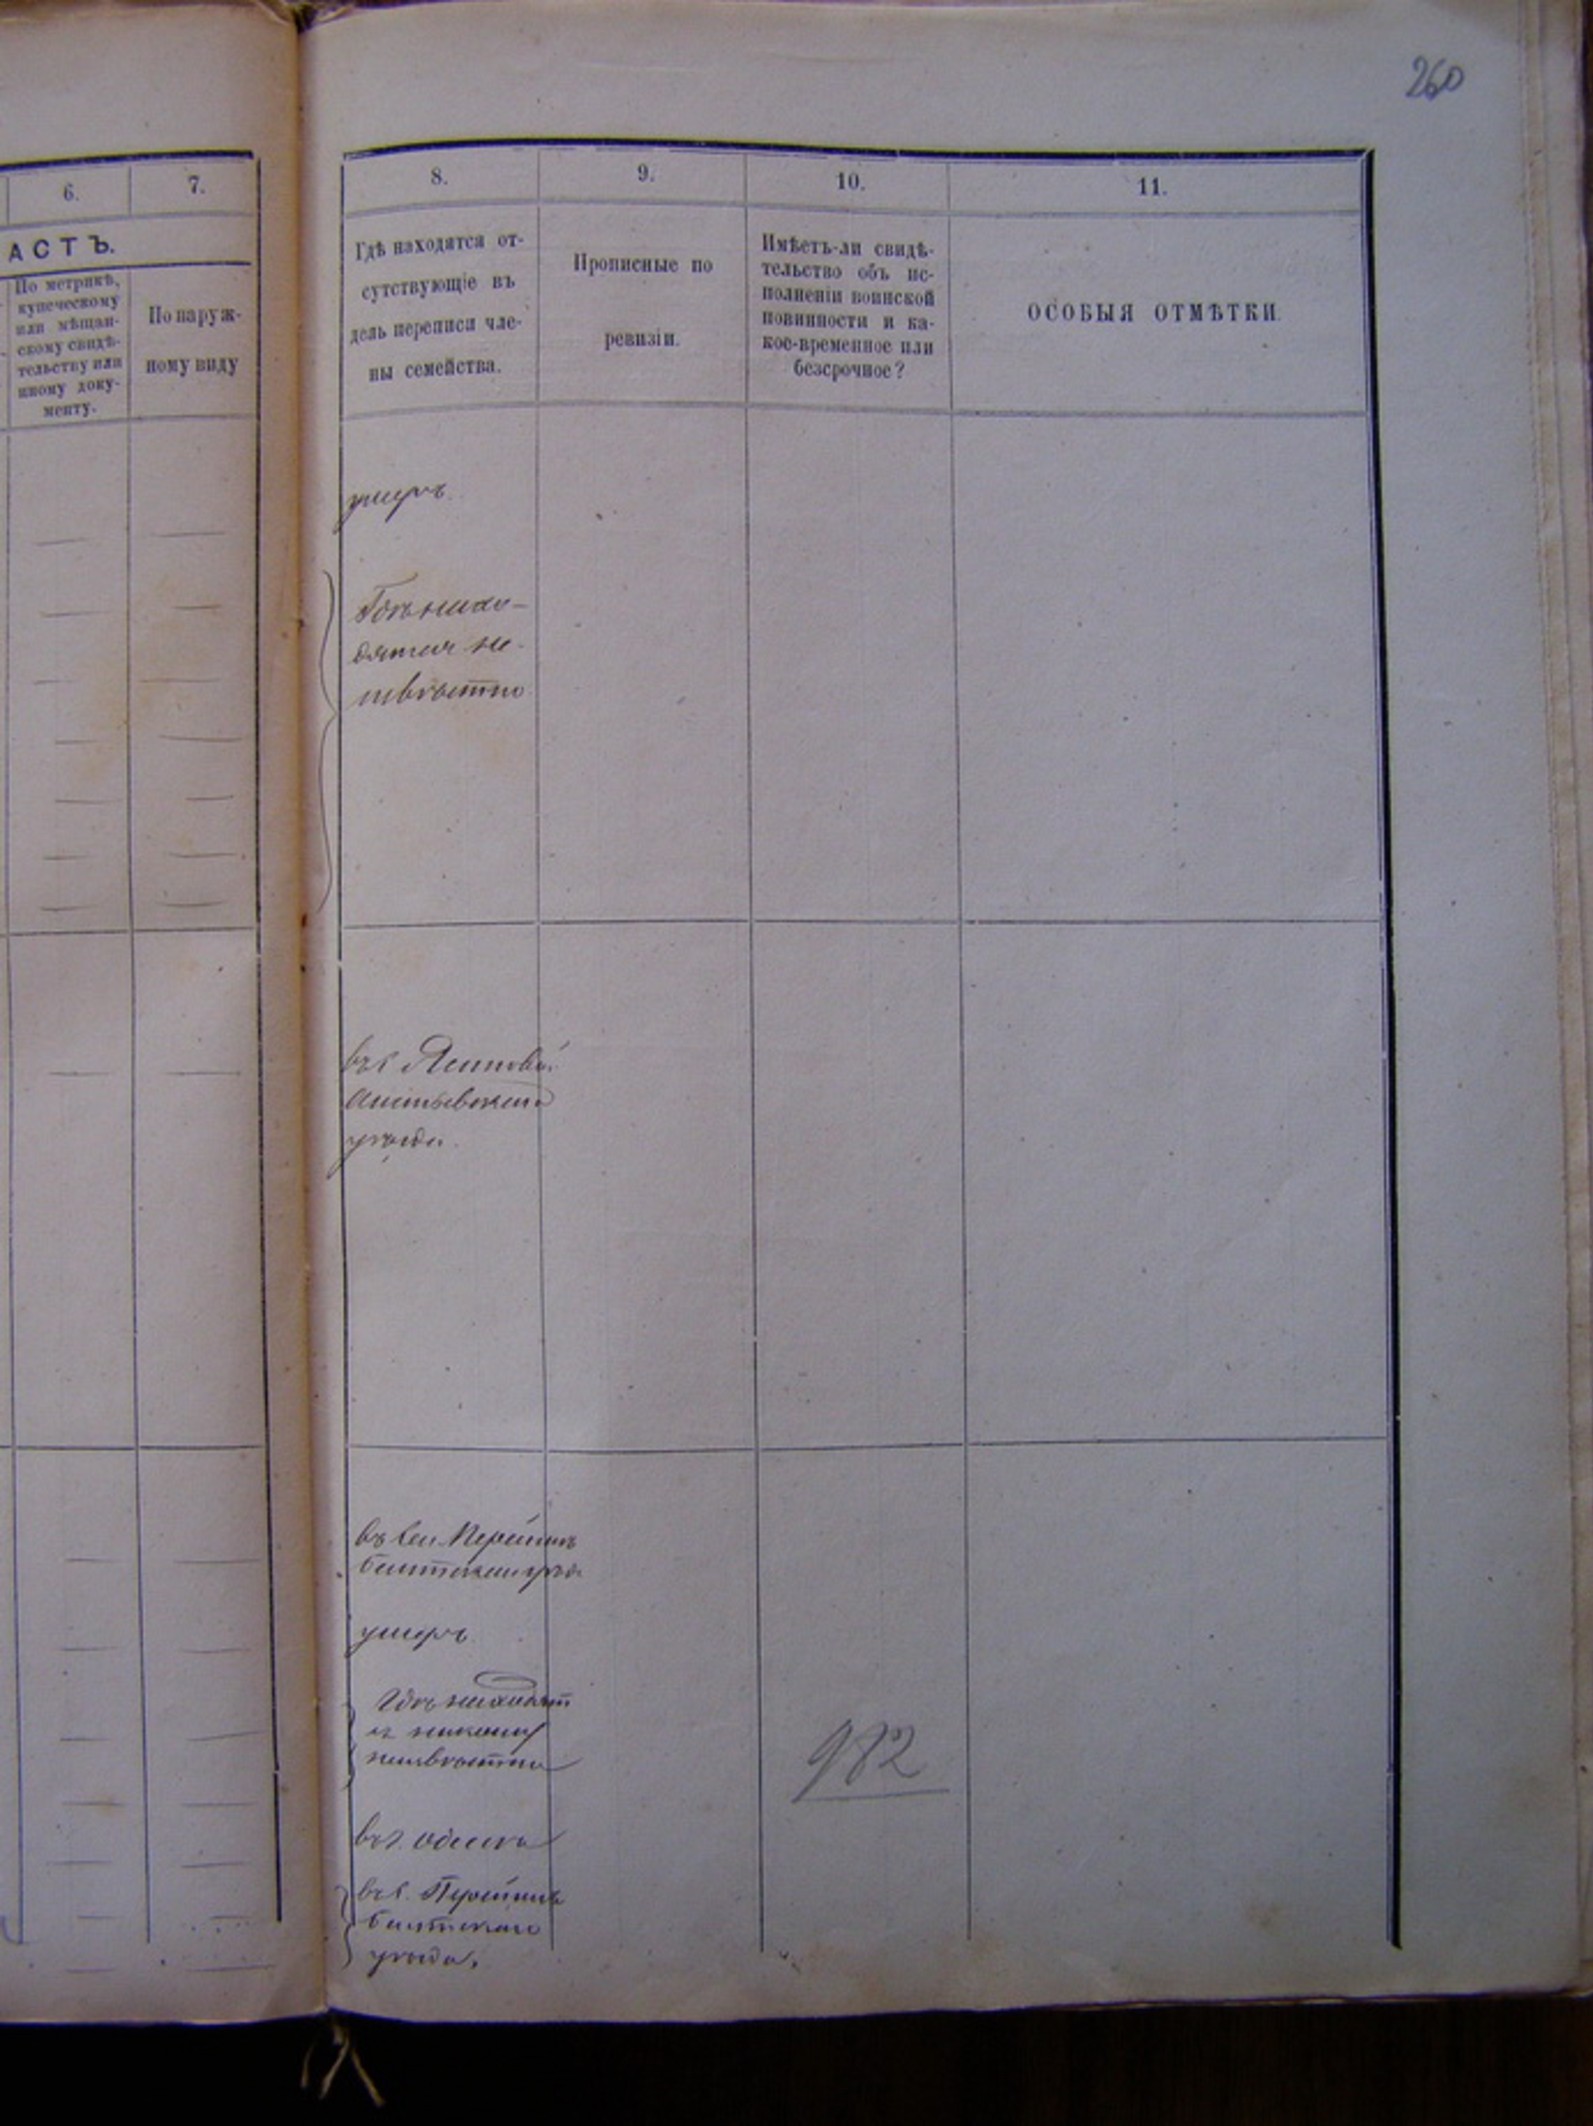 260
6.
7.
АСТЪ.
По метрикѣ,
купеческому
или мѣщан-
скому свидѣ-
тельству или
иному доку-
менту.
По наруж-
ному виду
8.
9.
10.
11.
Гдѣ находятся от-
сутствующіе въ
день переписи чле-
ны семейства.
Прописные по
ревизіи.
Имѣетъ-ли свидѣ-
тельство объ ис-
полненіи воинской
повинности и ка-
кое-временное или
безсрочное?
ОСОБЫЯ ОТМѢТКИ.
умеръ.
Гдѣ нахо-
дятся не-
извѣстно
въ с.
уѣзда.
въ
уѣзд
умеръ
Гдѣ находят
ся никому
неизвѣстно
982
въ г. Одессѣ
въ с.
уѣзда.